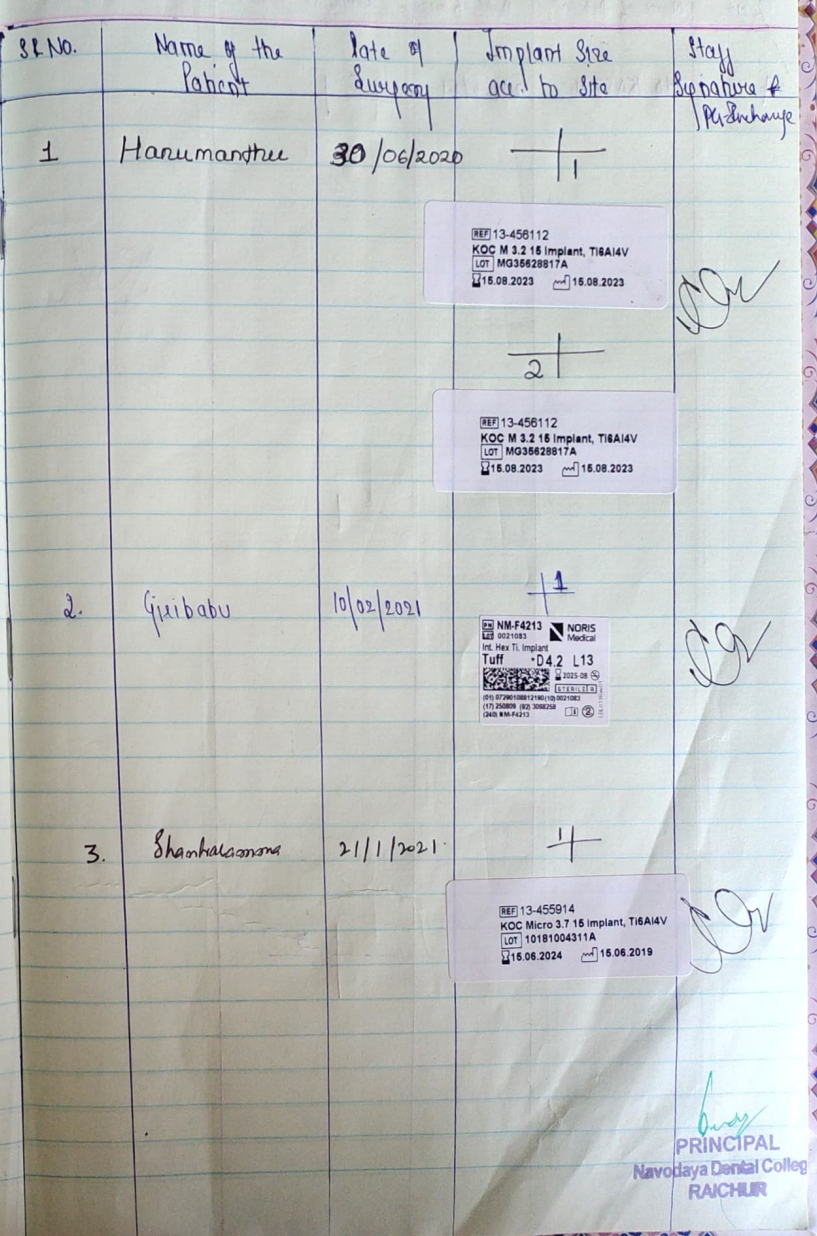 SR No.
Name of the
Patient
Date of
Surgery
Implant Size
acc. to Site
Staff
Signature &
PG-Incharge
1
Hanumanthu
30/06/2020
1
REF 13-456112
KOC M 3.2 15 Implant, Ti6Al4V
LOT MG35628817A
15.08.2023 15.08.2023
2
REF 13-456112
KOC M 3.2 15 Implant, Ti6Al4V
LOT MG35628817A
15.08.2023 15.08.2023
2.
Giribabu
10/02/2021
1
NM-F4213
LOT 0021083
NORIS
Medical
Int. Hex Ti. Implant
Tuff D4.2 L13
2025-08
STERILE R
(17) 250809 (92) 3098258
(240) NM-F4213
3.
21/1/2021
1
REF 13-455914
KOC Micro 3.7 15 Implant, Ti6Al4V
LOT 10181004311A
15.06.2024 15.06.2019
PRINCIPAL
Navodaya Dental Colleg
RAICHUR